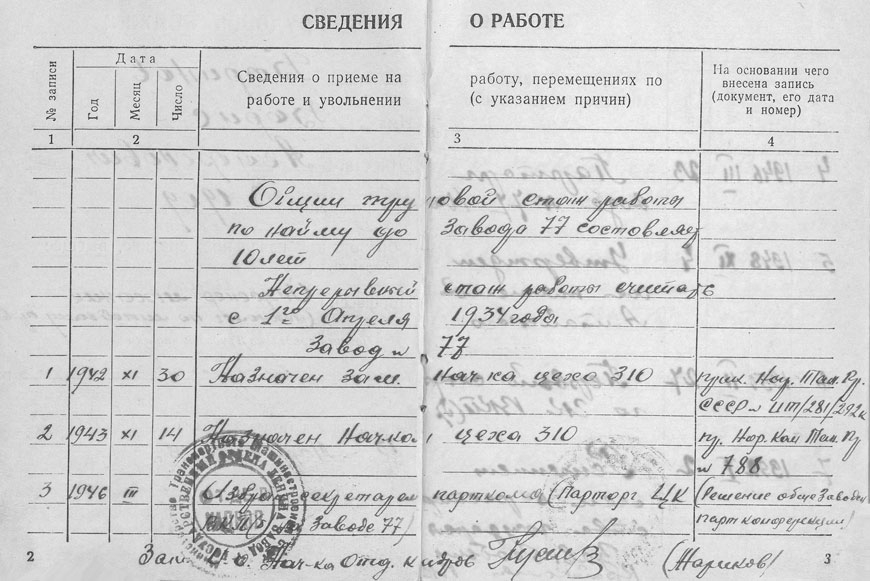 СВЕДЕНИЯ О РАБОТЕ
№ записи
Дата
Год
Месяц
Число
Сведения о приеме на работу, перемещениях по
работе и увольнении (с указанием причин)
На основании чего
внесена запись
(документ, его дата
и номер)
1 2 3 4
Общий трудовой стаж работы
по найму до Завода 77 составляет
10 лет
Непрерывный стаж работы считать
с 1го Апреля 1934 года
Завод № 77
1 1942 XI 30 Назначен зам. Нач-ка цеха 310 прик. Нар. Ком. Тан. Пр.
СССР № 281/292к
2 1943 XI 14 Назначен Нач-ком цеха 310 пр. Нар. Ком Тан. Пр
№ 788
3 1946 III Избран секретарем парткома (Парторг ЦК (Решение общезаводск
на Заводе 77) партконференции)
Зам. Нач-ка Отд. кадров (Жариков)
2 3